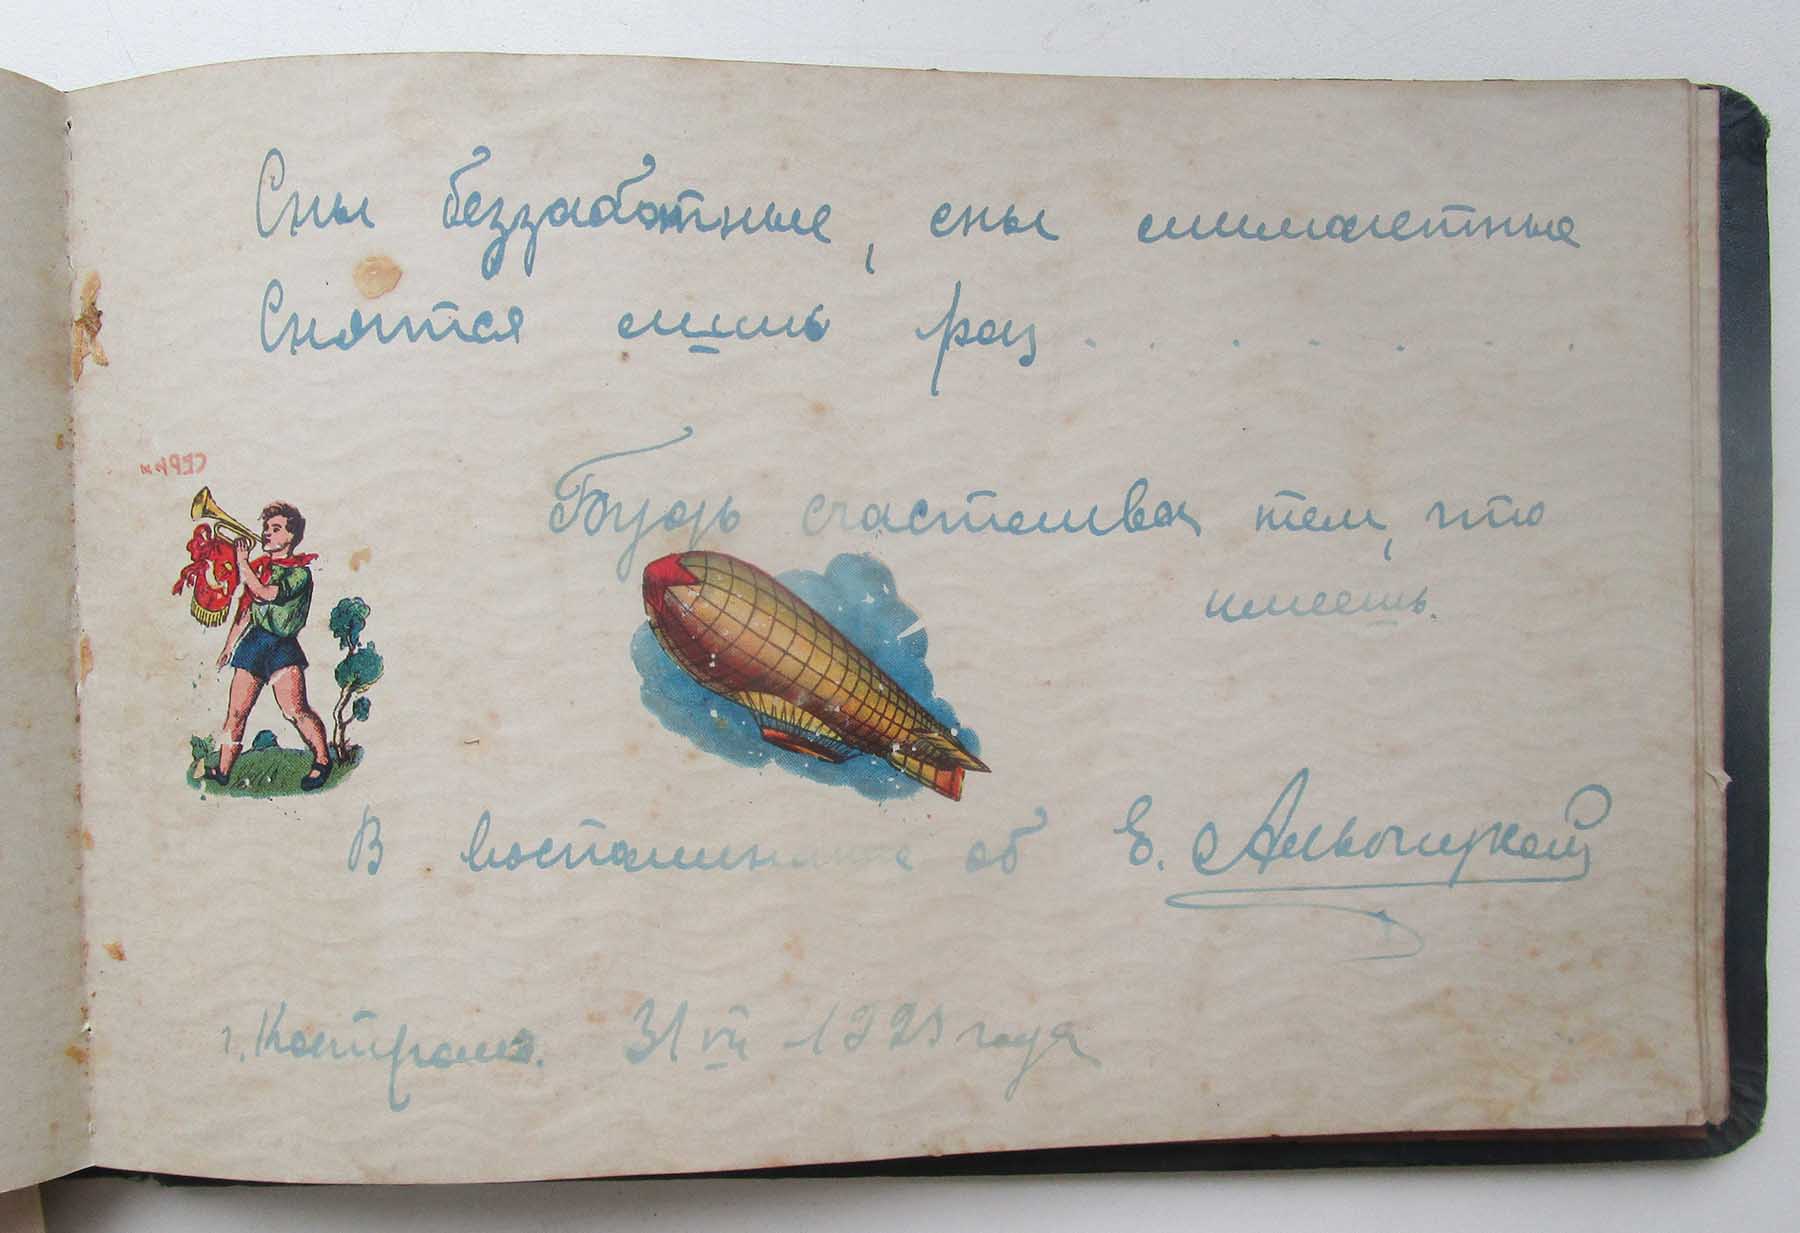 Сны беззаботные, сны мимолетные
Снятся лишь раз . . . . . . .
Будь счастлива тем, что
имеешь.
В воспоминание об Е.
г. Кострома. 31 VII года